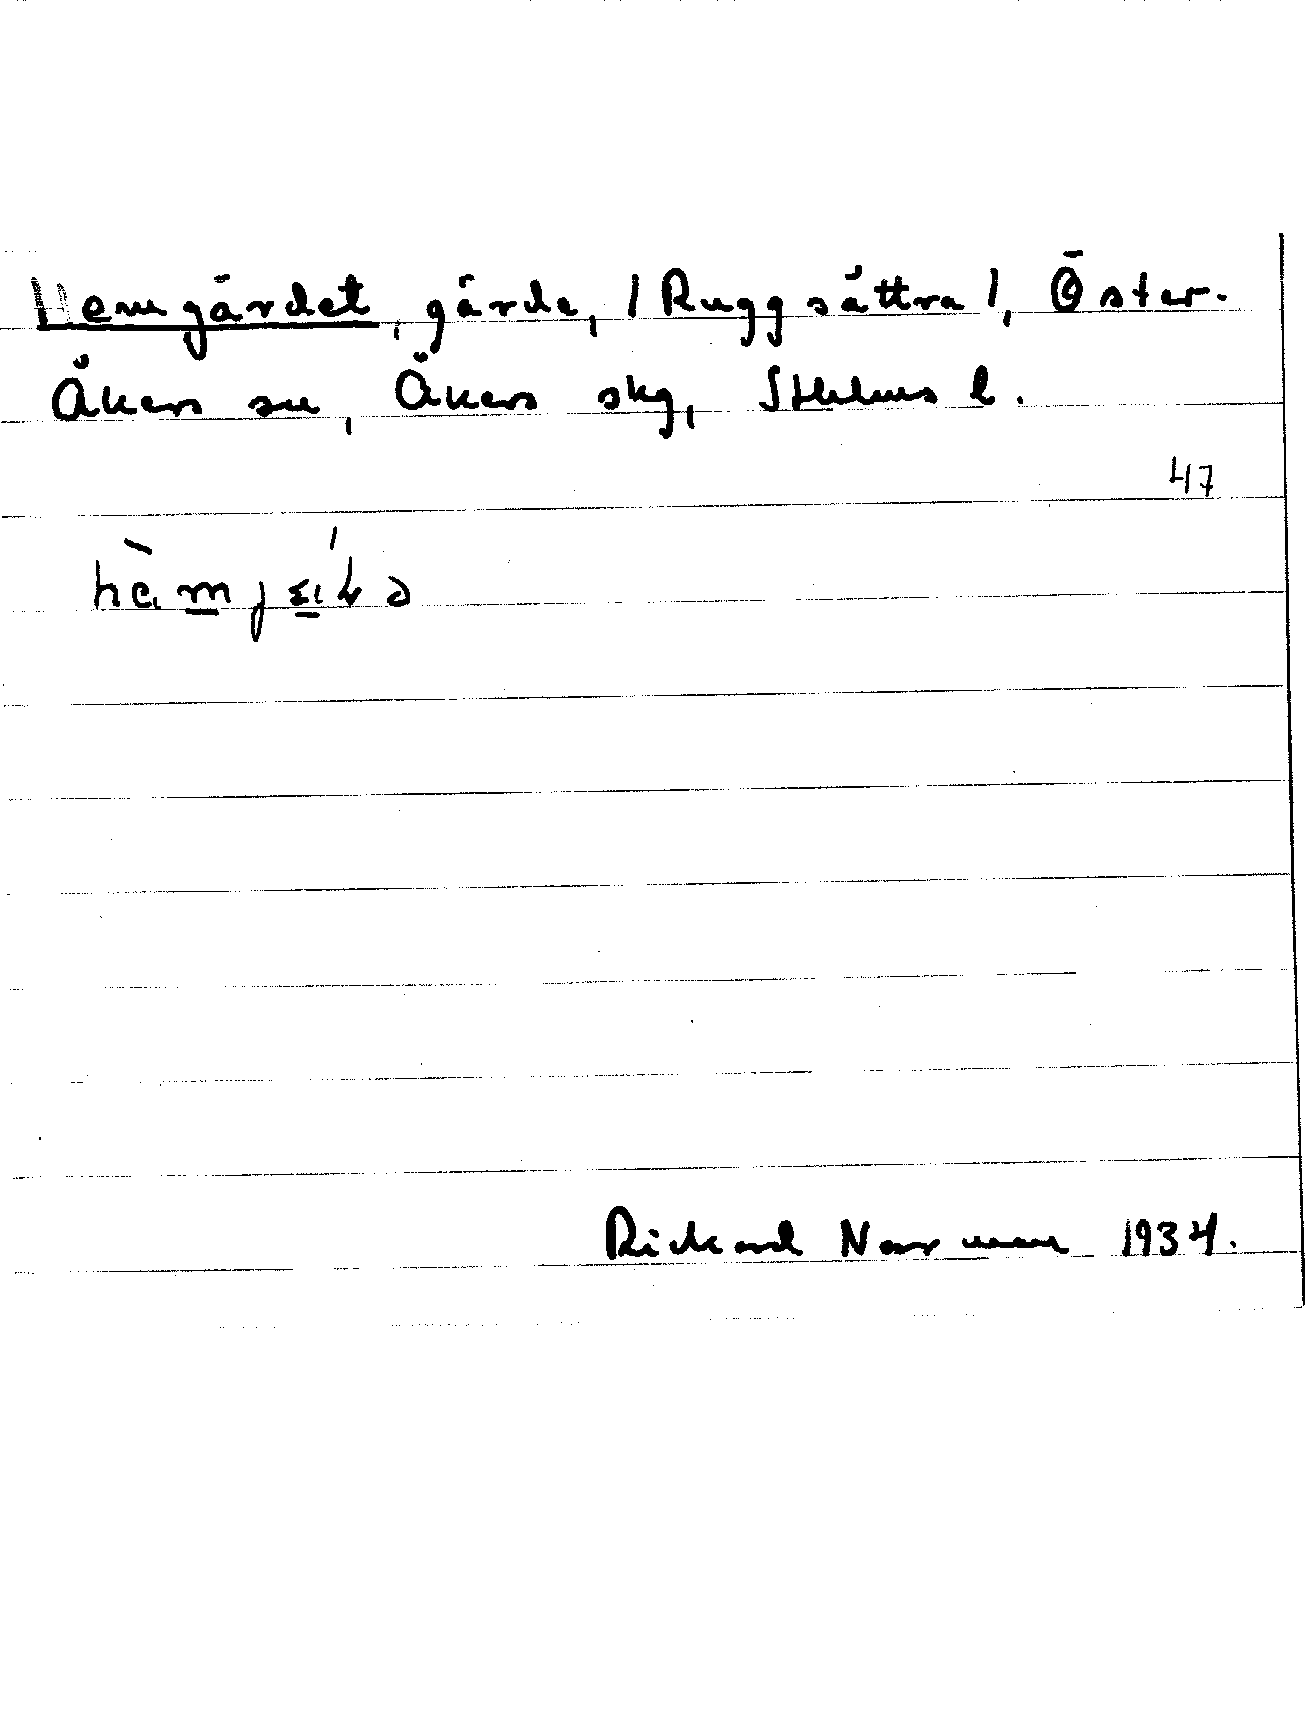 Hemgärdet, gärde, /Ruggsättra/, Öster-
Åkers sn, Åkers skg, Sthlms l.
47
Rickard Norman 1934.